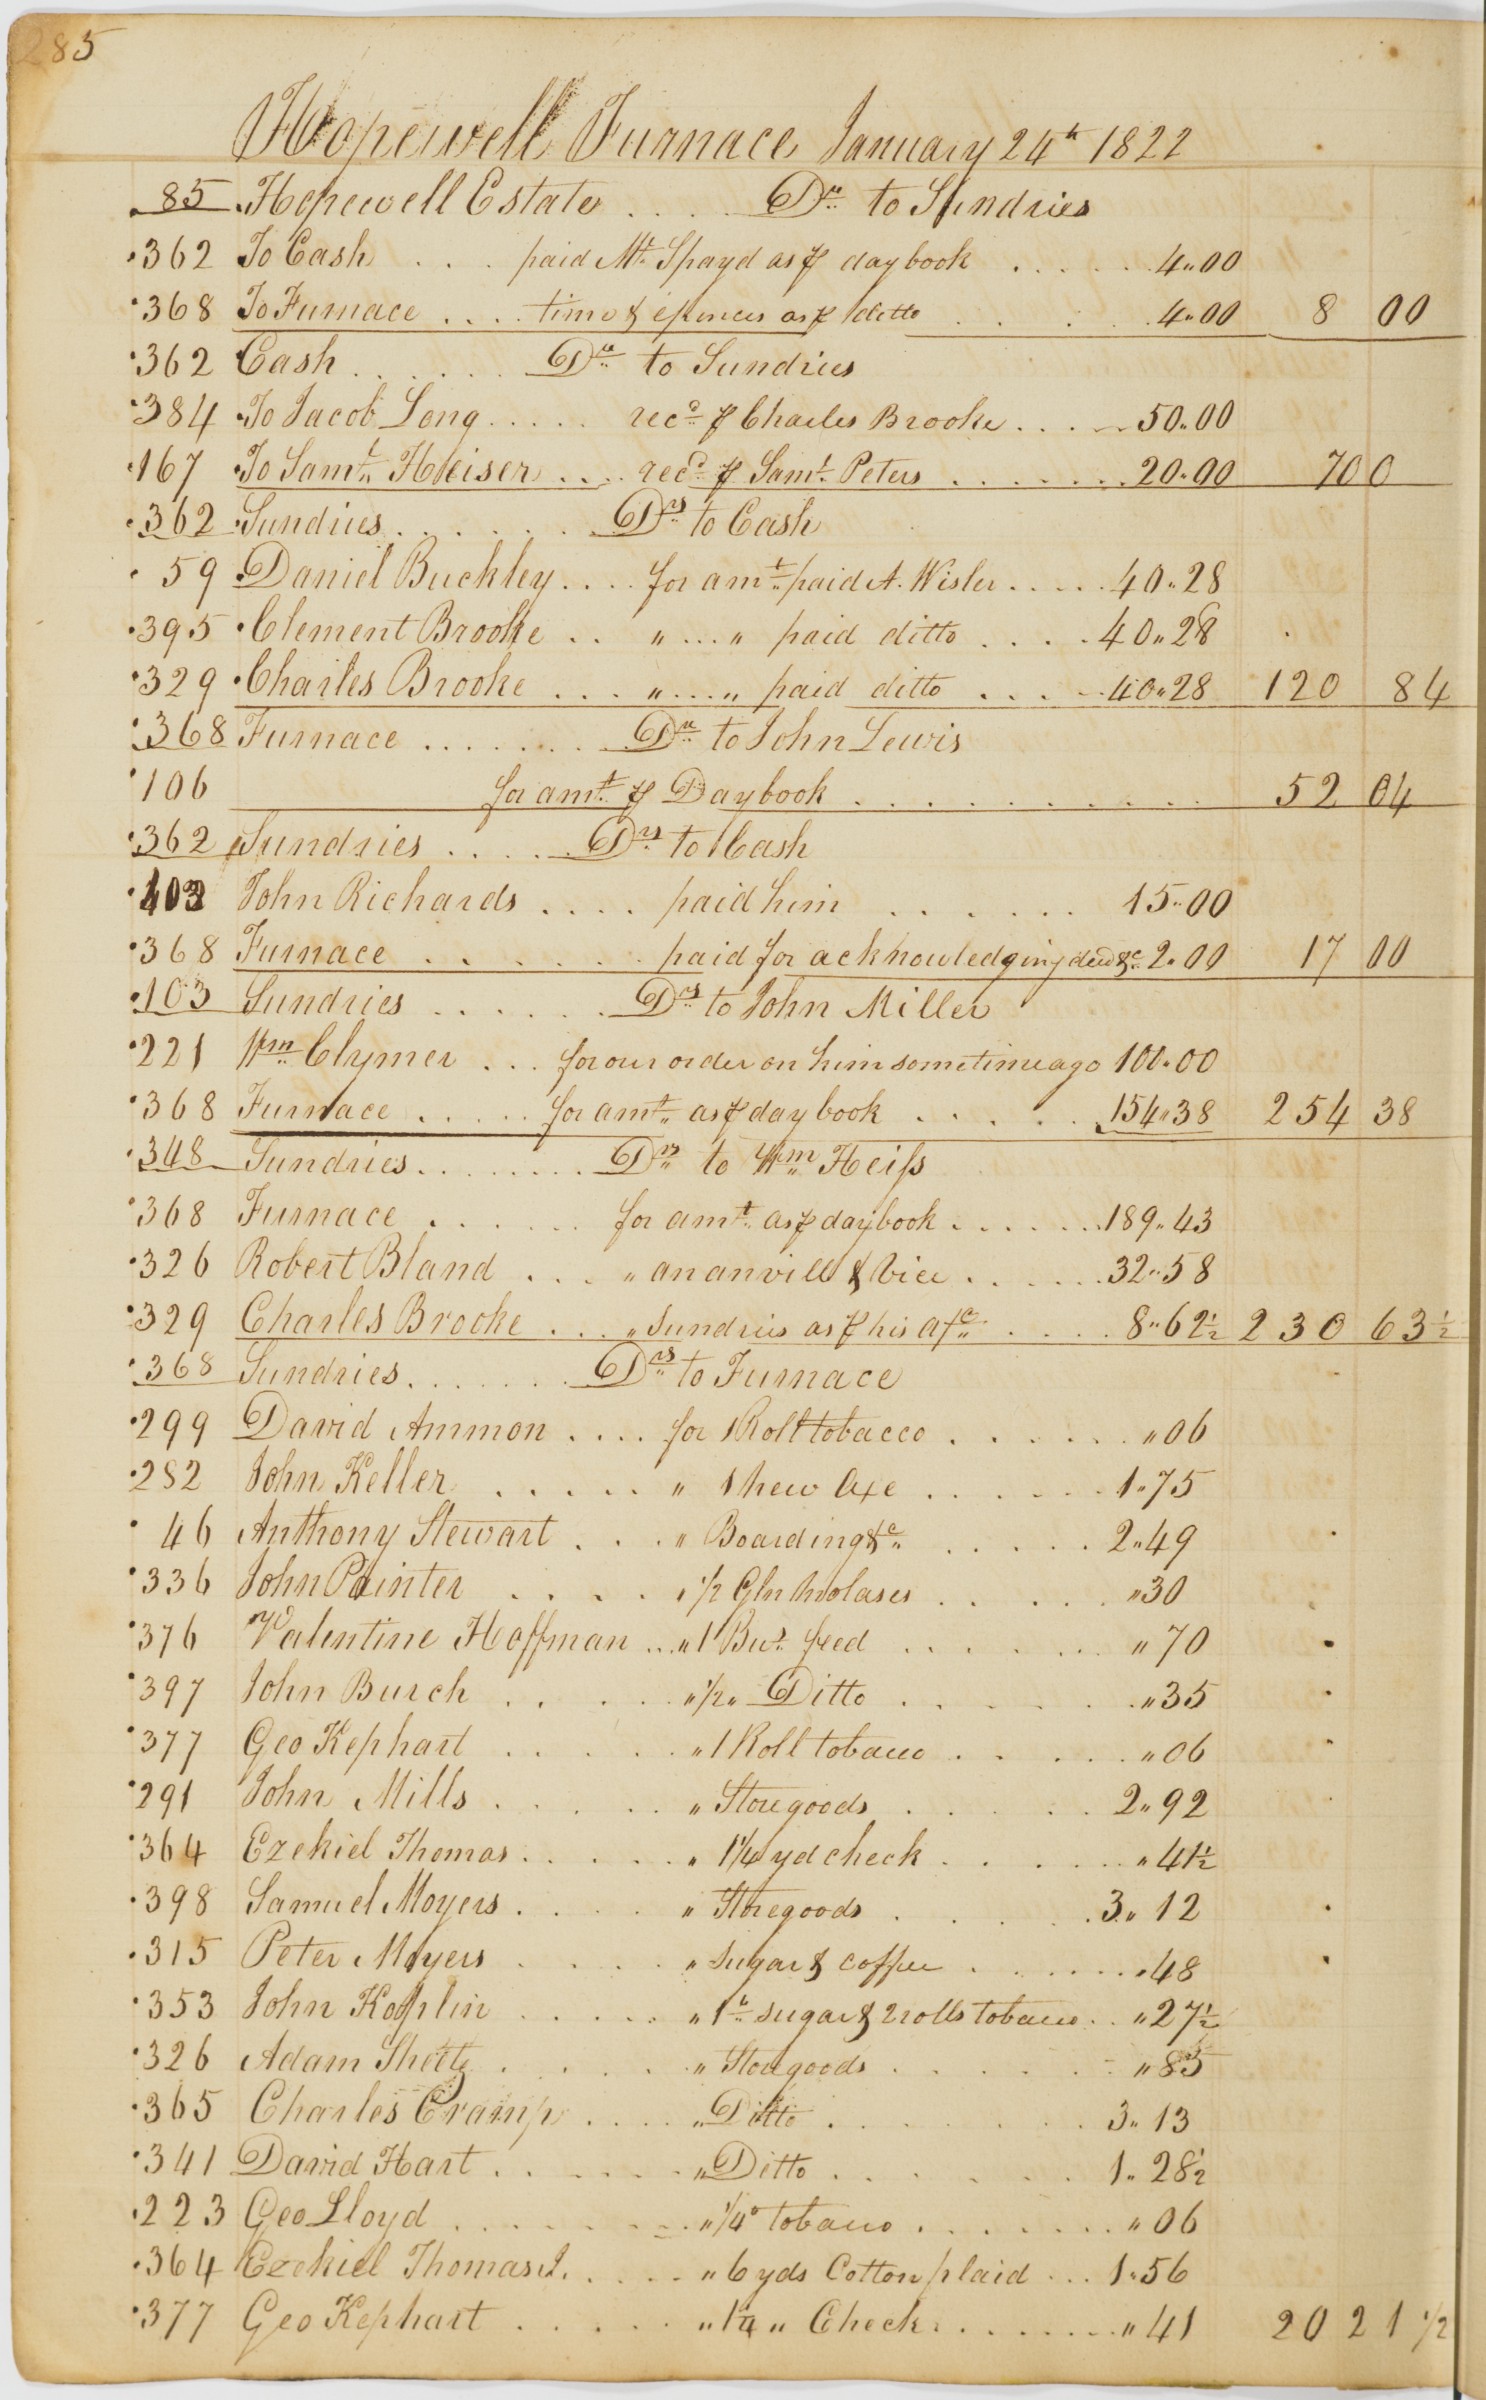 285
Hopewell Furnace January 24th 1822
85 Hopewell Estate .... Dr to Sundries
362 To Cash ... paid Mr Spayd as ⅌ daybook ..... 4"00
368 To Furnace .... time & expences as ⅌ ditto .... 4"00 8 00
362 Cash ...... Dr to Sundries
384 To Jacob Long ..... recd ⅌ Charles Brooke .... 50"00
167 To Saml Heiser .... recd ⅌ Saml Peters ....... 20"00 70 0
362 Sundries ...... Drs to Cash
59 Daniel Buckley .... for amt paid A. Wisler ..... 40"28
395 Clement Brooke .. " ... " paid ditto .... 40"28
329 Charles Brooke ... " .... " paid ditto .... 40"28 120 84
368 Furnace ....... Dr to John Lewis
106 for amt ⅌ Daybook .......... 52 04
362 Sundries ..... Drs to Cash
John Richards .... paid him ...... 15"00
368 Furnace ...... paid for acknowledging deed &c 2"00 17 00
103 Sundries ...... Drs to John Miller
221 Wm Clymer ... for our order on him sometime ago 100"00
368 Furnace ..... for amt as ⅌ daybook ..... 154"38 254 38
348 Sundries ........ Drs to Wm Heiſs
368 Furnace ...... for amt as ⅌ daybook ...... 189"43
326 Robert Bland ... " an anvill & Vice ...... 32"58
329 Charles Brooke ... " Sundries as ⅌ his a/c .... 8"62½ 230 63½
368 Sundries ...... Drs to Furnace
299 David Ammon .... for 1 Roll tobacco ...... "06
282 John Keller ..... " 1 hew Axe ...... 1"75
46 Anthony Stewart ... " Boarding &c ..... 2"49
336 John Painter .... " 1/2 Gln Molases ..... "30
376 Valentine Hoffman .. " 1 Bus. feed ...... "70
397 John Burch ..... " 1/2 " Ditto ...... "35
377 Geo Kephart ..... " 1 Roll tobacco ..... "06
291 John Mills ..... " Storegoods ..... 2"92
364 Ezekiel Thomas ..... " 1¼ yd check ..... "41½
398 Samuel Moyers .... " Storegoods ..... 3"12
315 Peter Moyers .... " sugar & coffee ...... "48
353 John Koplin ..... " 1 lb sugar & 2 rolls tobacco .. "27½
326 Adam Sheetz .... " Storegoods ..... "85
365 Charles Cramp .... " Ditto ...... 3"13
341 David Hart ..... " Ditto ...... 1"28½
223 Geo Lloyd ...... " 1/4 " tobacco ....... "06
364 Ezekiel Thomas ..... " 6 yds Cotton plaid ... 1"56
377 Geo Kephart ..... " 1¼ " Check ....... "41 20 21 1/2